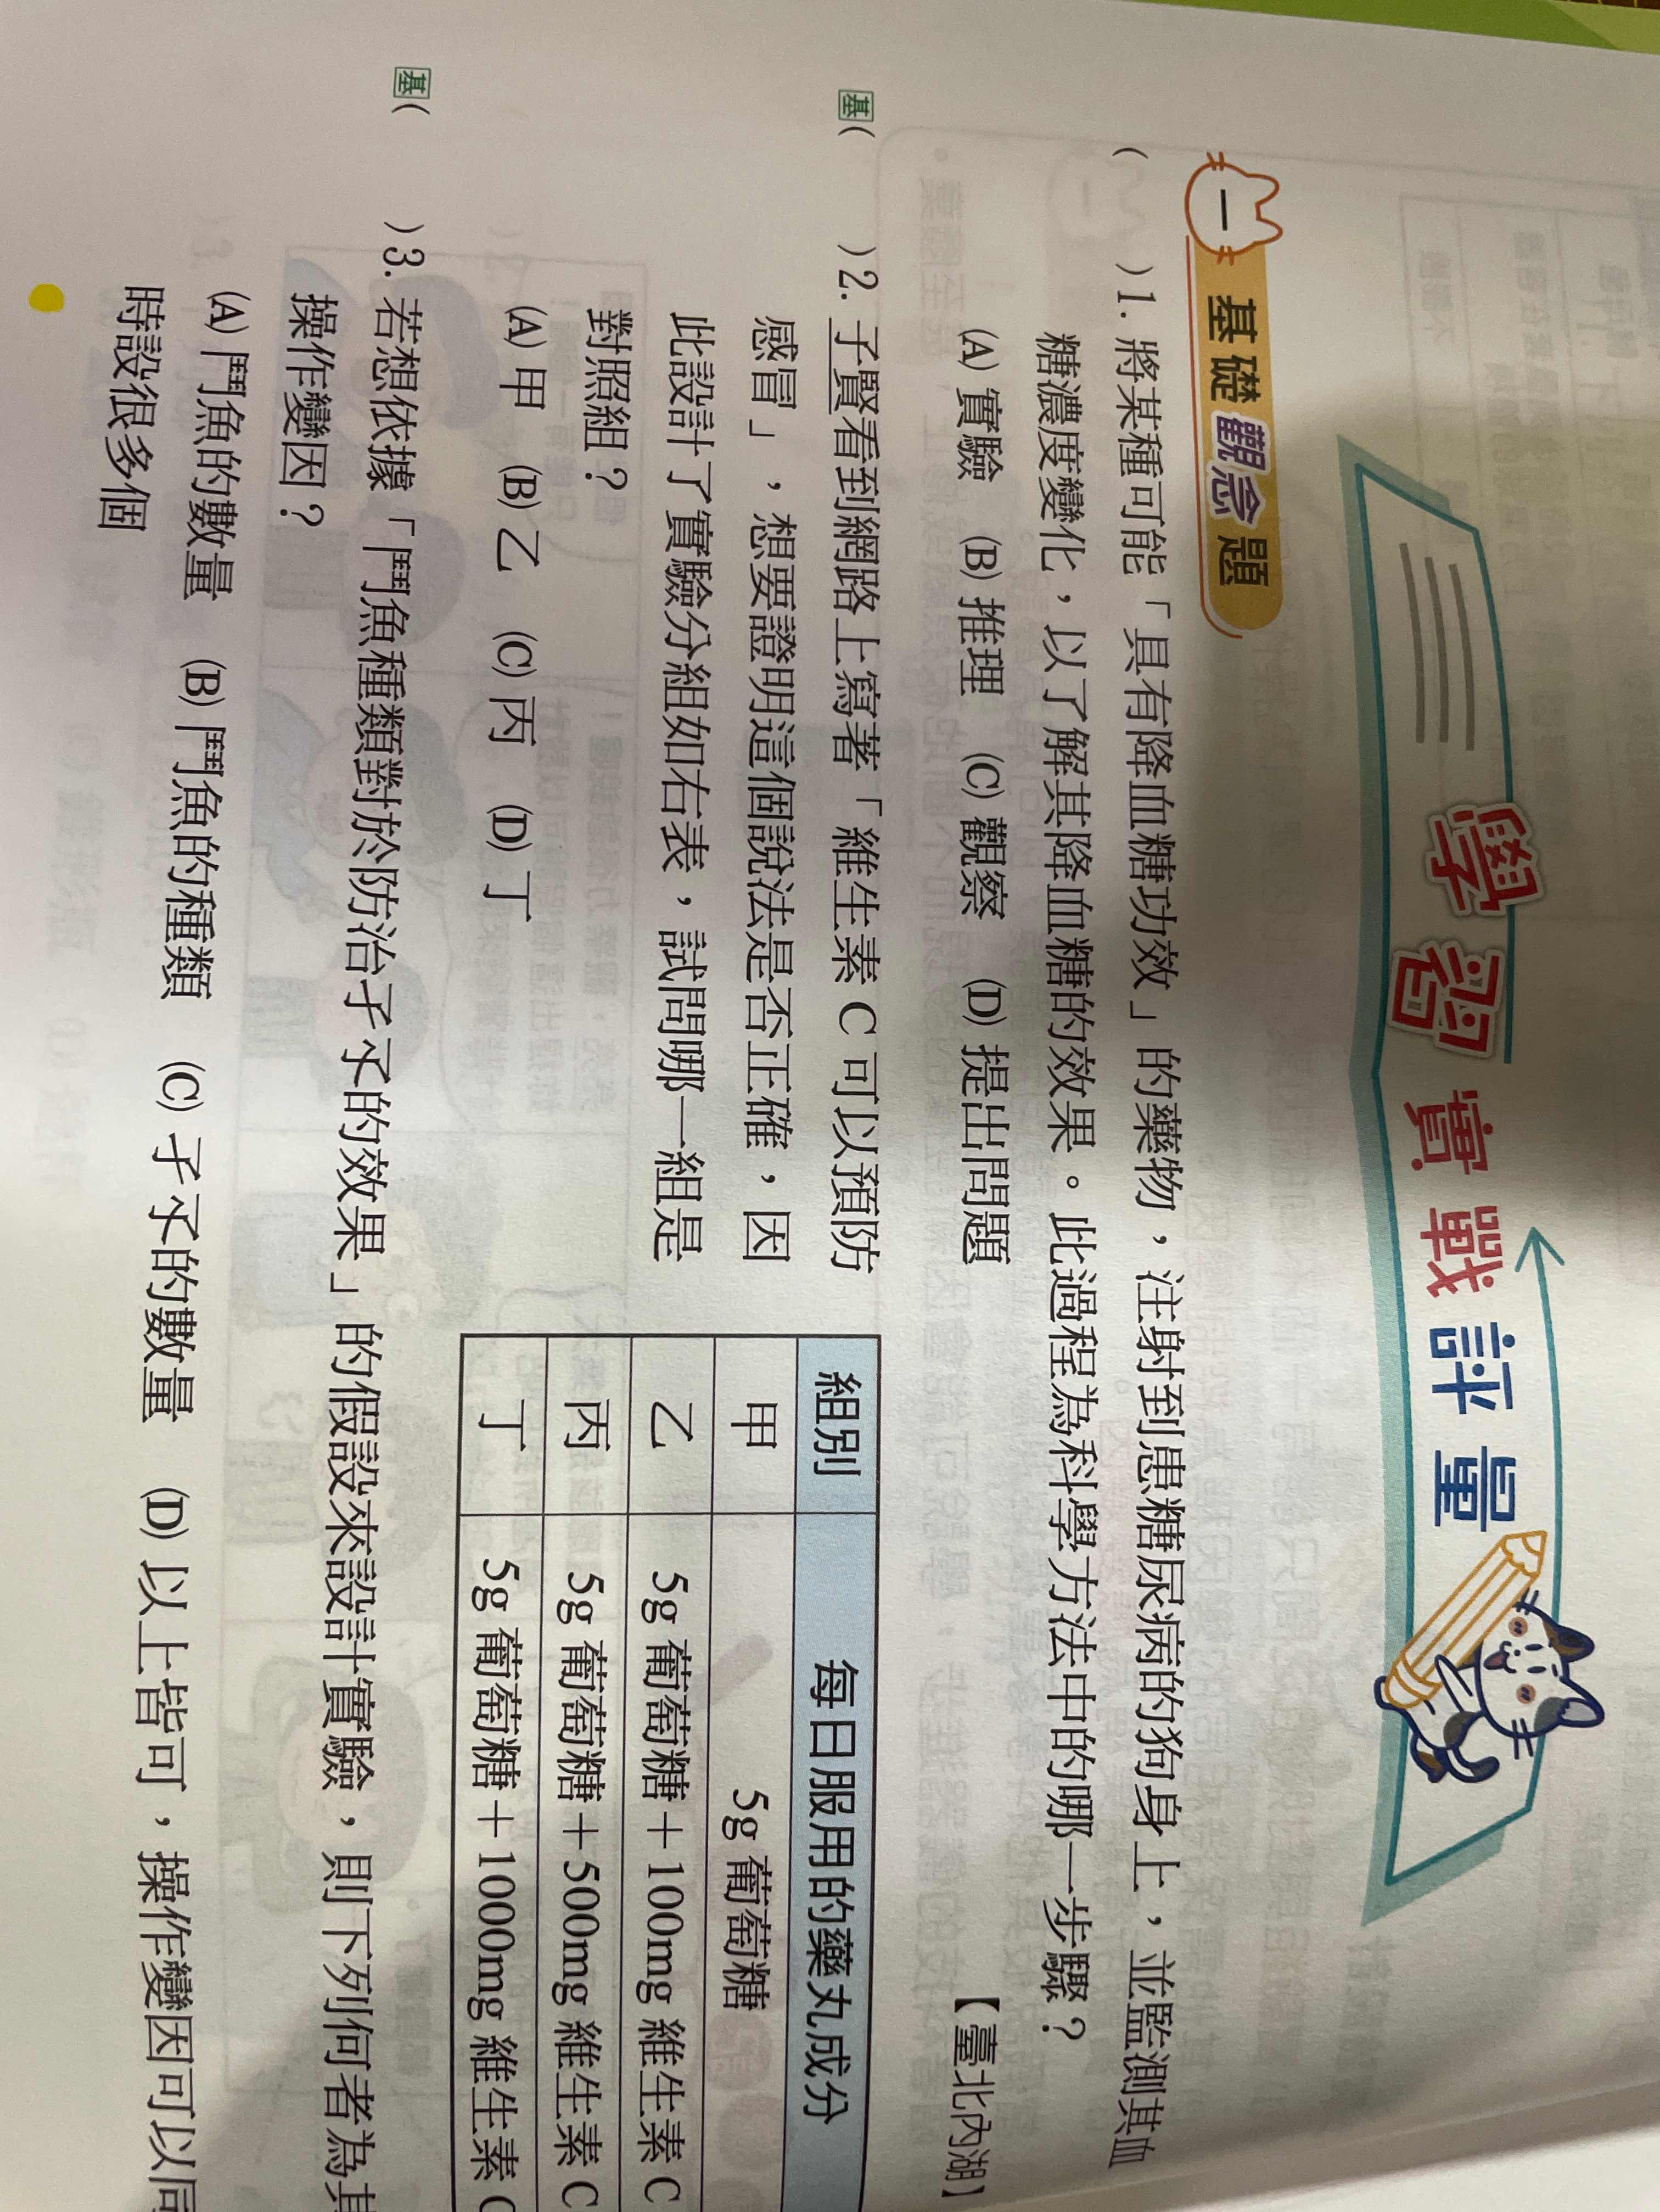 學習實戰評量
一 基礎觀念題
(　　)1. 將某種可能「具有降血糖功效」的藥物，注射到患糖尿病的狗身上，並監測其血
糖濃度變化，以了解其降血糖的效果。此過程為科學方法中的哪一步驟？
(A) 實驗　(B) 推理　(C) 觀察　(D) 提出問題
【臺北內湖】
基(　　)2. 子賢看到網路上寫著「維生素 C 可以預防
感冒」，想要證明這個說法是否正確，因
此設計了實驗分組如右表，試問哪一組是
對照組？
(A) 甲　(B) 乙　(C) 丙　(D) 丁
組別　每日服用的藥丸成分
甲　5g 葡萄糖
乙　5g 葡萄糖＋100mg 維生素 C
丙　5g 葡萄糖＋500mg 維生素 C
丁　5g 葡萄糖＋1000mg 維生素 C
基(　　)3. 若想依據「鬥魚種類對於防治孑孓的效果」的假設來設計實驗，則下列何者為其
操作變因？
(A) 鬥魚的數量　(B) 鬥魚的種類　(C) 孑孓的數量　(D) 以上皆可，操作變因可以同
時設很多個